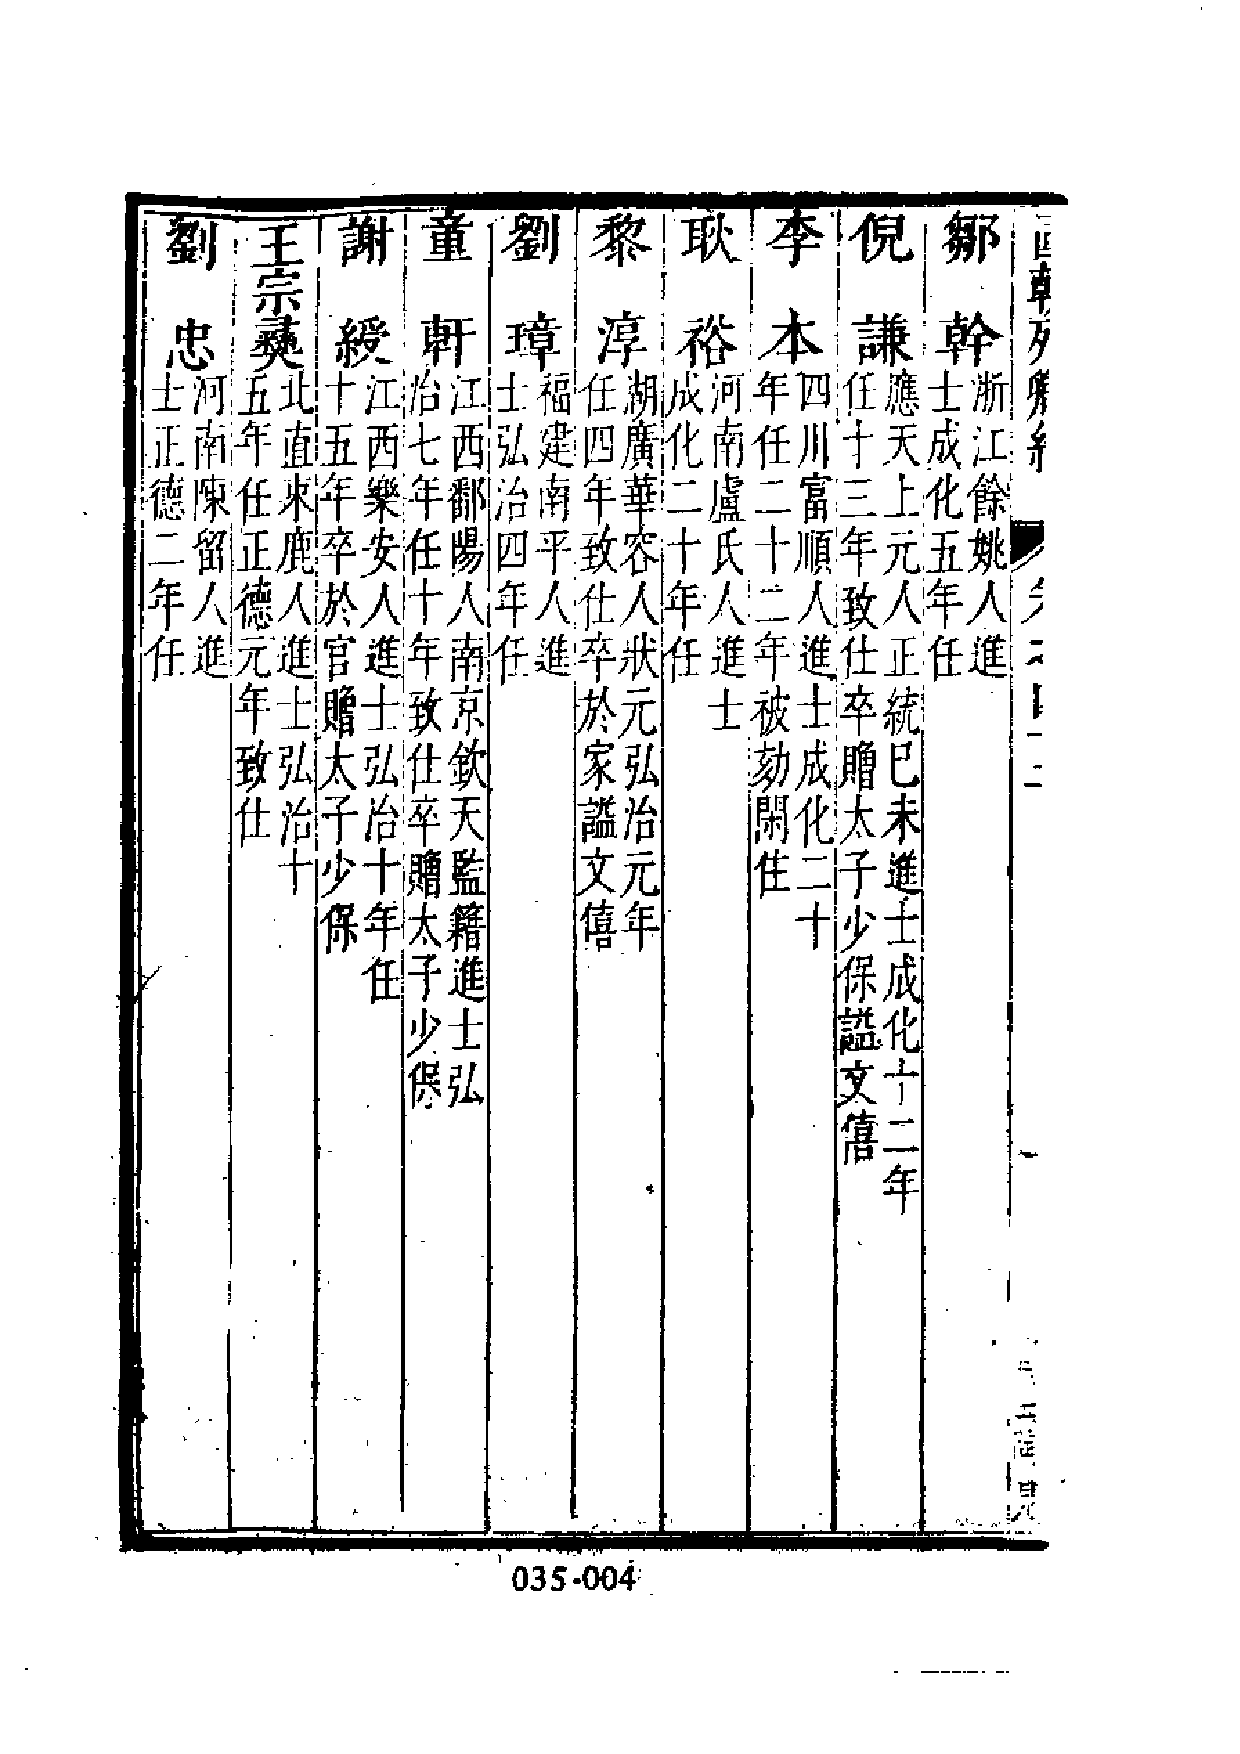 鄒　幹
浙江餘姚人進
士成化五年任
倪　謙
應天上元人正統巳未進士成化十二年
任十三年致仕卒贈太子少保諡文僖
李　本
四川富順人進士成化二十
年任二十二年被劾閑住
耿　裕
河南盧氏人進士
成化二十年任
黎　淳
湖廣華容人狀元弘治元年
任四年致仕卒於家諡文僖
劉　璋
福建南平人進
士弘治四年任
童　軒
江西鄱陽人南京欽天監籍進士弘
治七年任十年致仕卒贈太子少保
謝　綬
江西樂安人進士弘治十年任
十五年卒於官贈太子少保
王宗彞
北直束鹿人進士弘治十
五年任正德元年致仕
劉　忠
河南陳留人進
士正德二年任
035-004